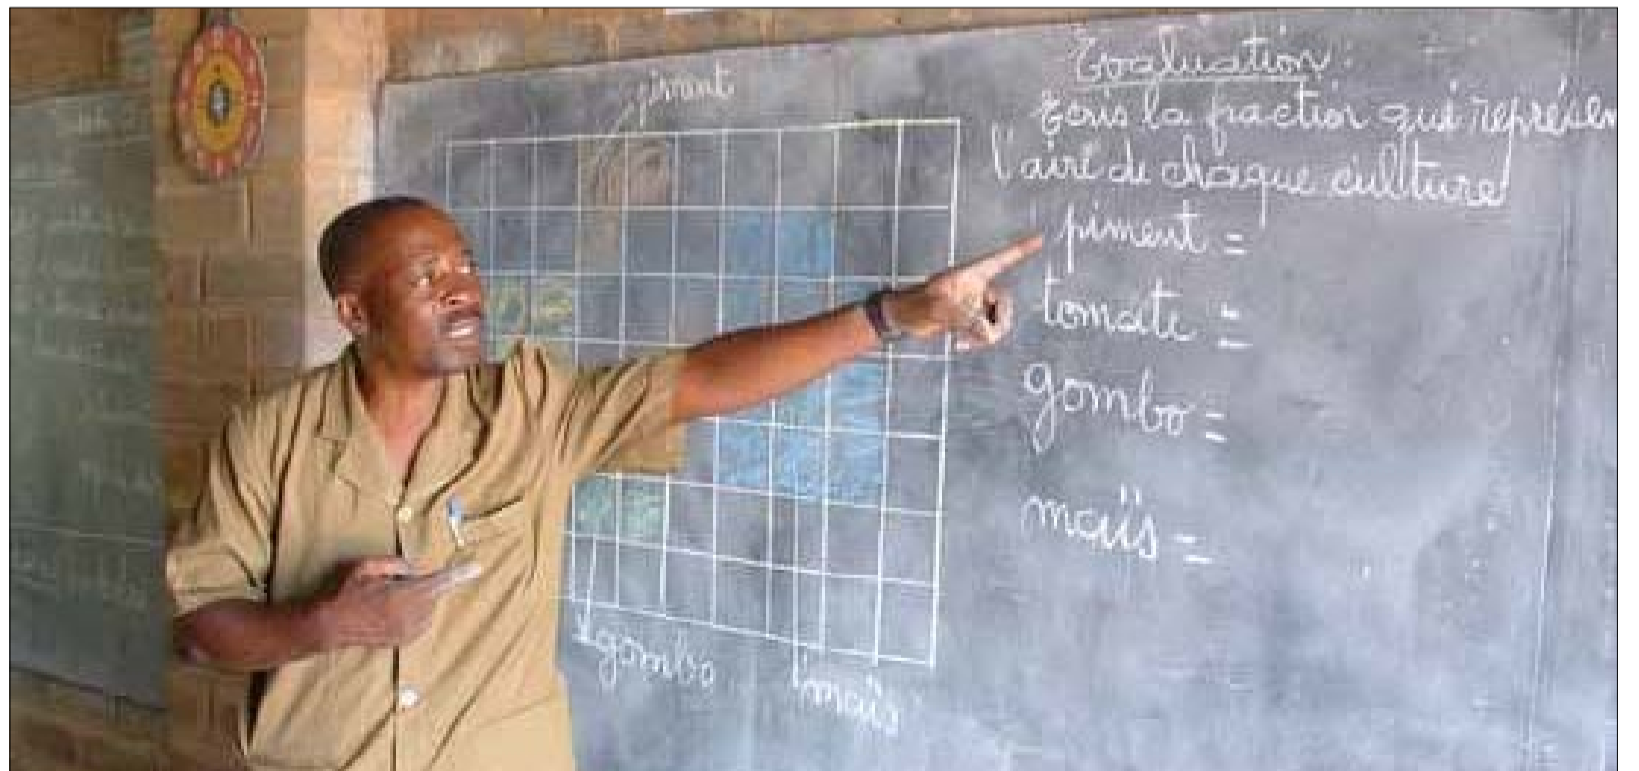 piment
Evaluation:
Ecris la fraction qui représen
l'aire de chaque cultture
piment =
tomate =
gombo =
maïs =
gombo
maïs